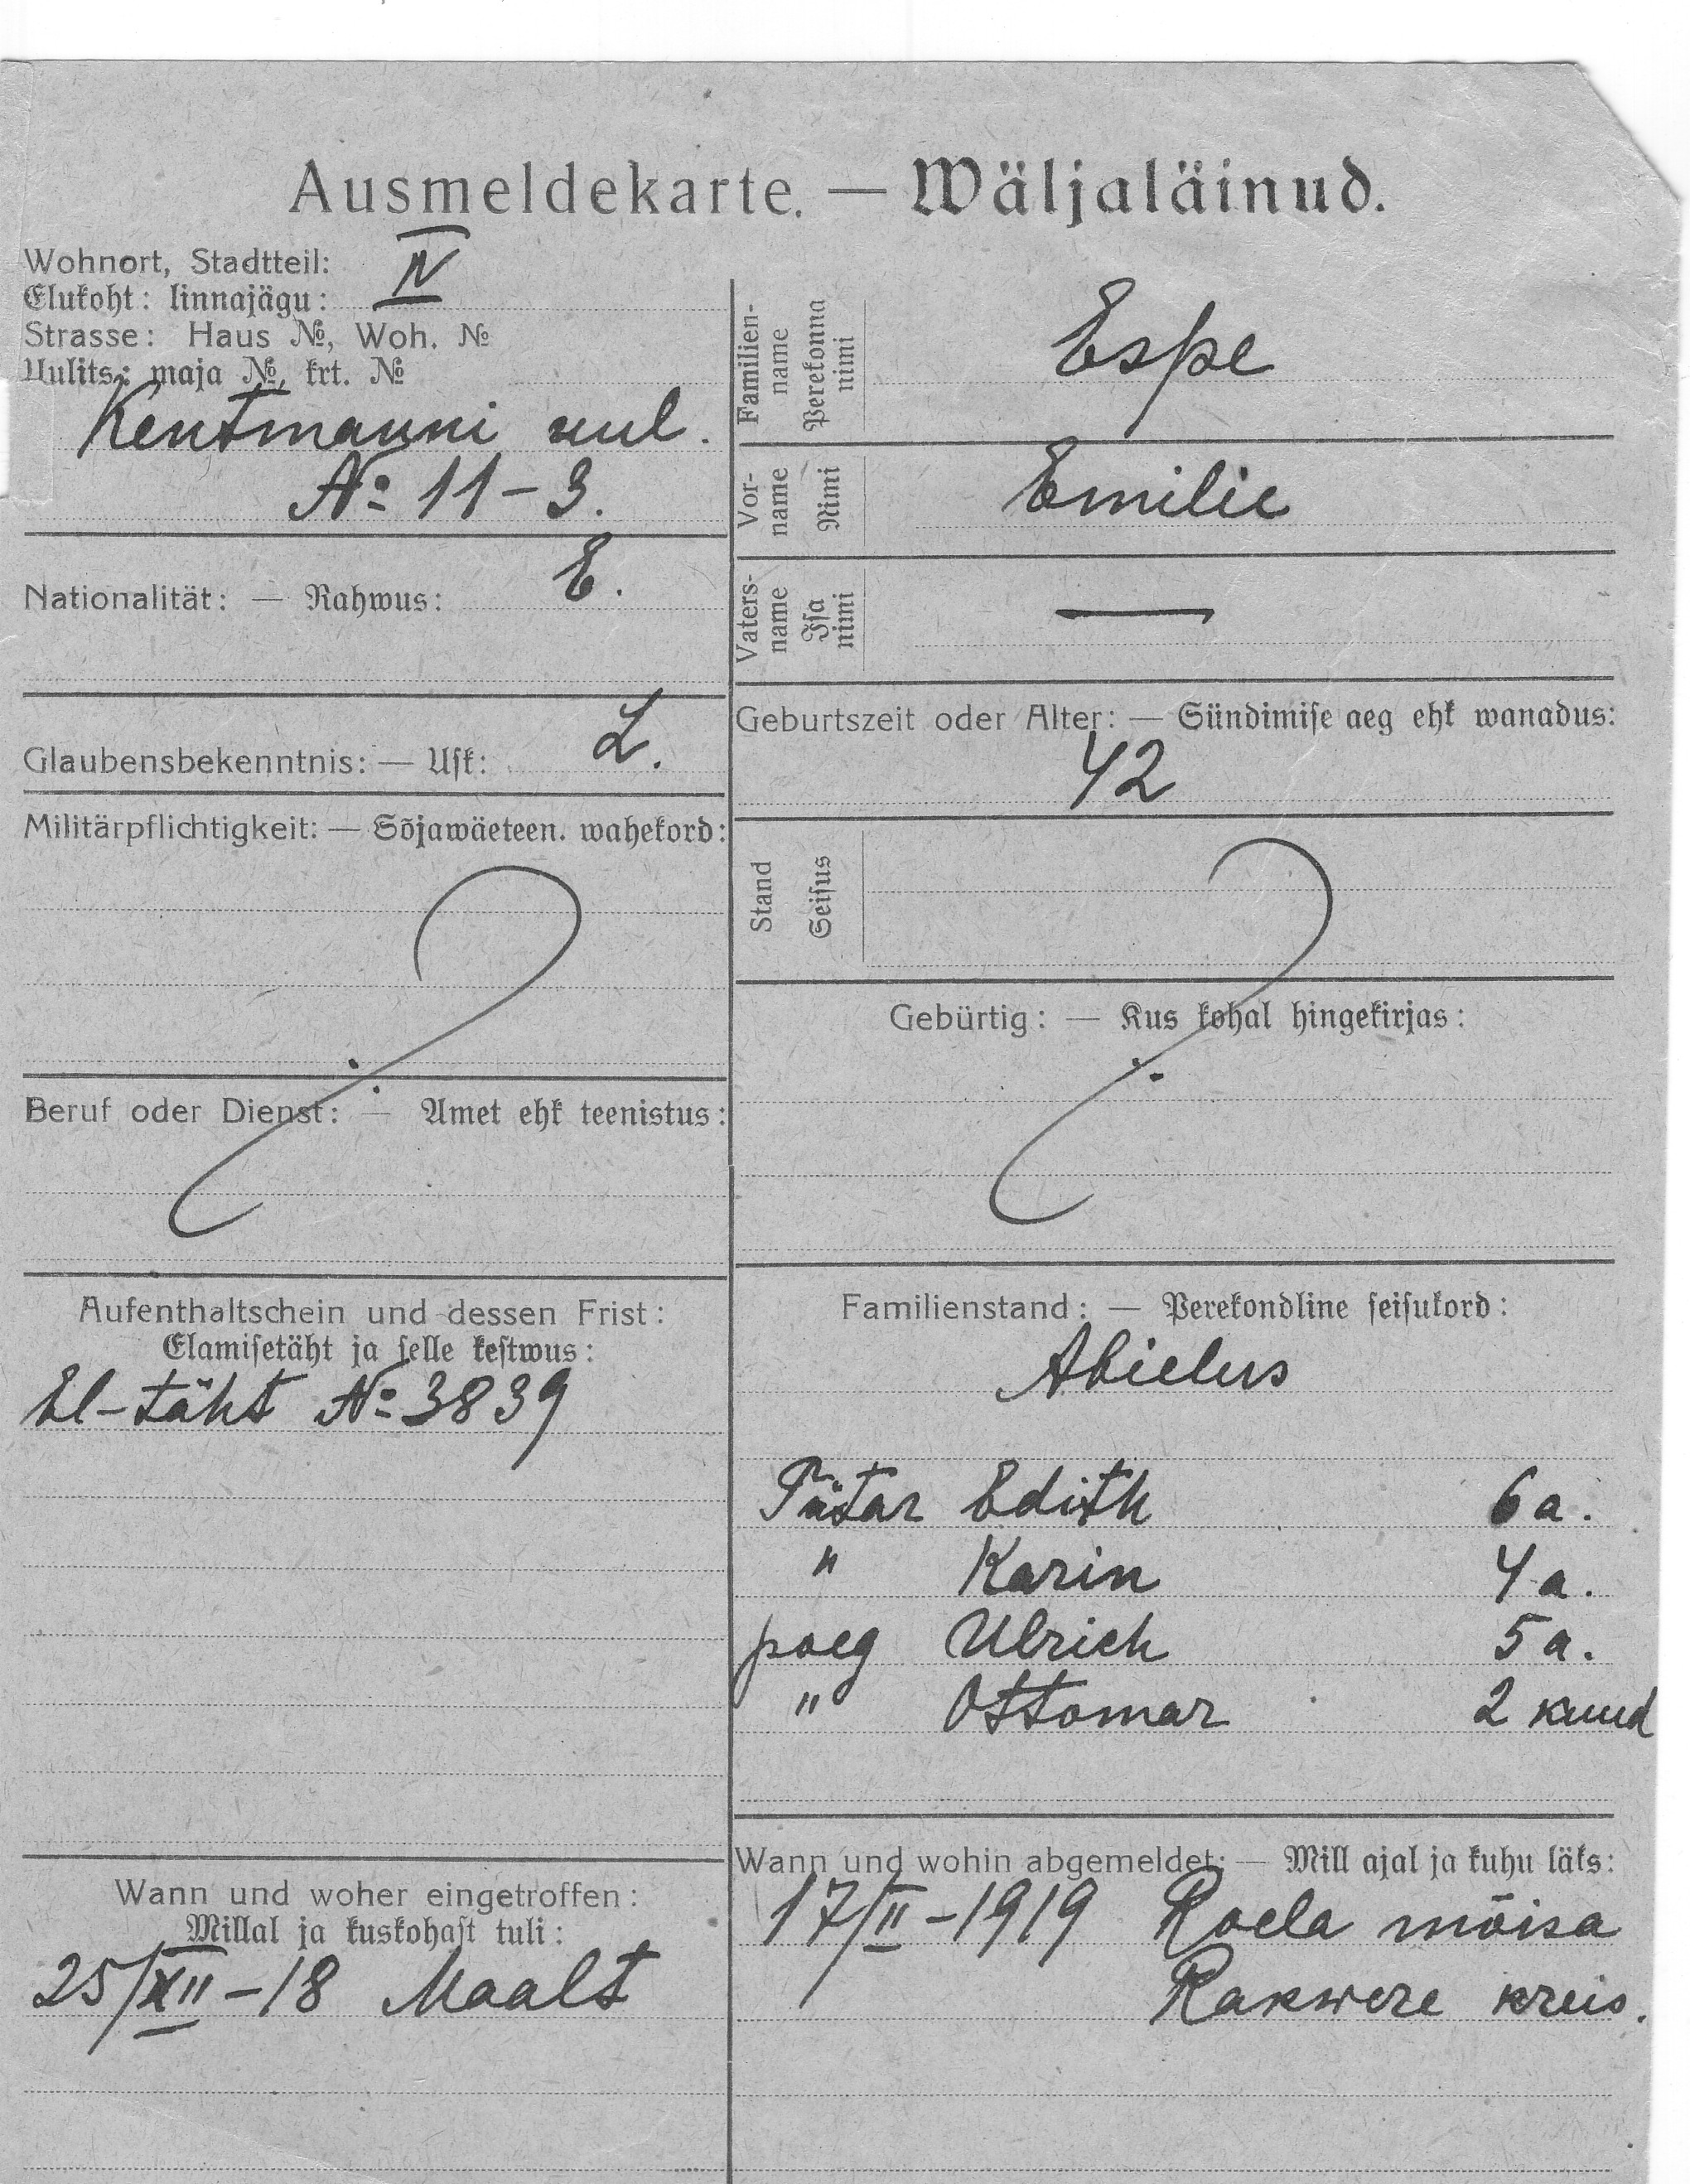 Ausmeldekarte. — Wäljaläinud.
Wohnort, Stadtteil:
Elukoht: linnajägu: IV
Strasse: Haus №, Woh. №
Uulits: maja №, krt. №
Kentmanni uul.
№ 11-3.
Nationalität: — Rahwus: E.
Glaubensbekenntnis: — Usk: L.
Militärpflichtigkeit: — Sõjawäeteen. wahekord:
Beruf oder Dienst: — Amet ehk teenistus:
Aufenthaltschein und dessen Frist:
Elamisetäht ja selle kestwus:
El-täht № 3839
Wann und woher eingetroffen:
Millal ja kuskohast tuli:
25/XII-18 Maalt
Familien-
name
Perekonna
nimi
Espe
Vor-
name
Nimi
Emilie
Vaters-
name
Isa
nimi
—
Geburtszeit oder Alter: — Sündimise aeg ehk wanadus:
42
Stand
Seisus
Gebürtig: — Kus kohal hingekirjas:
Familienstand: — Perekondline seisukord:
Abielus
Tütar Edith 6 a.
" Karin 4 a.
poeg Ulrich 5 a.
" Ottomar 2 kuud
Wann und wohin abgemeldet: — Mill ajal ja kuhu läks:
17/II-1919 Roela mõisa
Rakwere kreis.